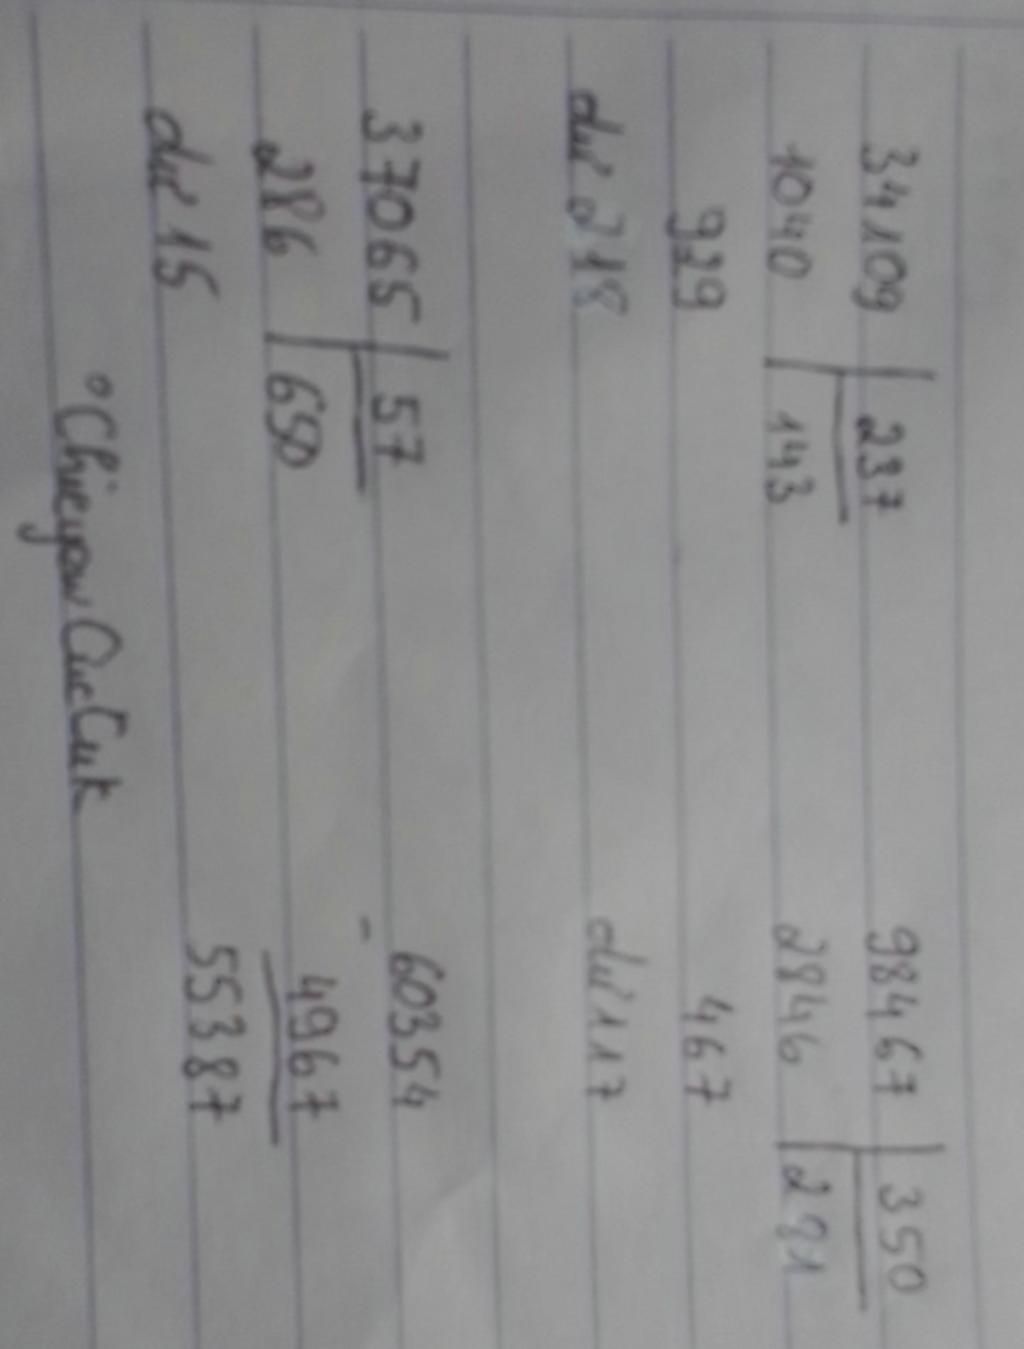 34109 | 237 98467 | 350
1040 143 2846 281
929 467
dư 218 dư 117
37065 | 57 - 60354
286 650 4967
dư 15 55387